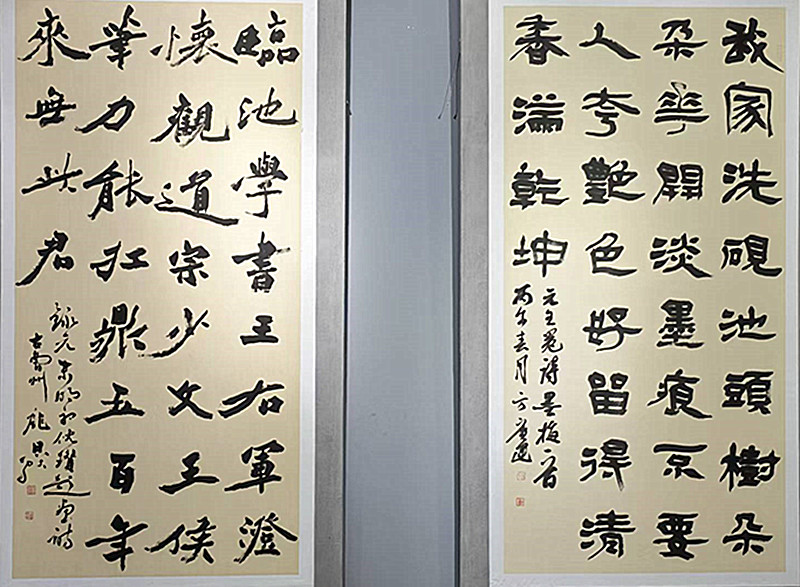 我家洗硯池頭樹朵
朵華開淡墨痕不要
人夸艷色好留得清
香滿乾坤
元王冕詩墨梅一首
丙午春月方建
臨池學書王右軍澄
懷觀道宗少文王侯
筆力能扛鼎五百年
來無此君
錄元末明初倪瓚題畫詩
古雷州龐